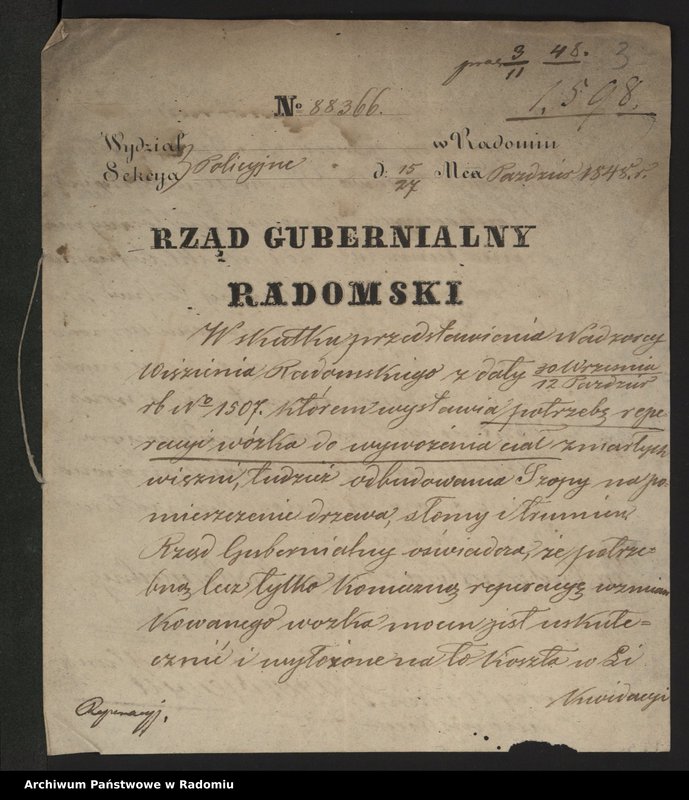 pras 3/11 48. 3
1,598.
No 88366.
Wydział w Radomiu
Sekcya Policyjne d. 15/27 Mca Paździer 1848. r.
RZĄD GUBERNIALNY
RADOMSKI
W skutku przedstawienia Nadzorcy
Więzienia Radomskiego z daty 30 Września/12 Paździer
rb No 1507. którem wystawia potrzebę repe-
racyi wózka do wywożenia ciał zmarłych
więzni, tudzież odbudowania Szopy na po-
mieszczenie drzewa, słomy i trumien
Rząd Gubernialny oświadcza, że potrze-
bną lecz tylko konieczną reperacyę wzmian
kowanego wozka mocen jest uskute-
cznić i wyłożone na to koszta w Li
kwidacyi
Reperacyj.
Archiwum Państwowe w Radomiu